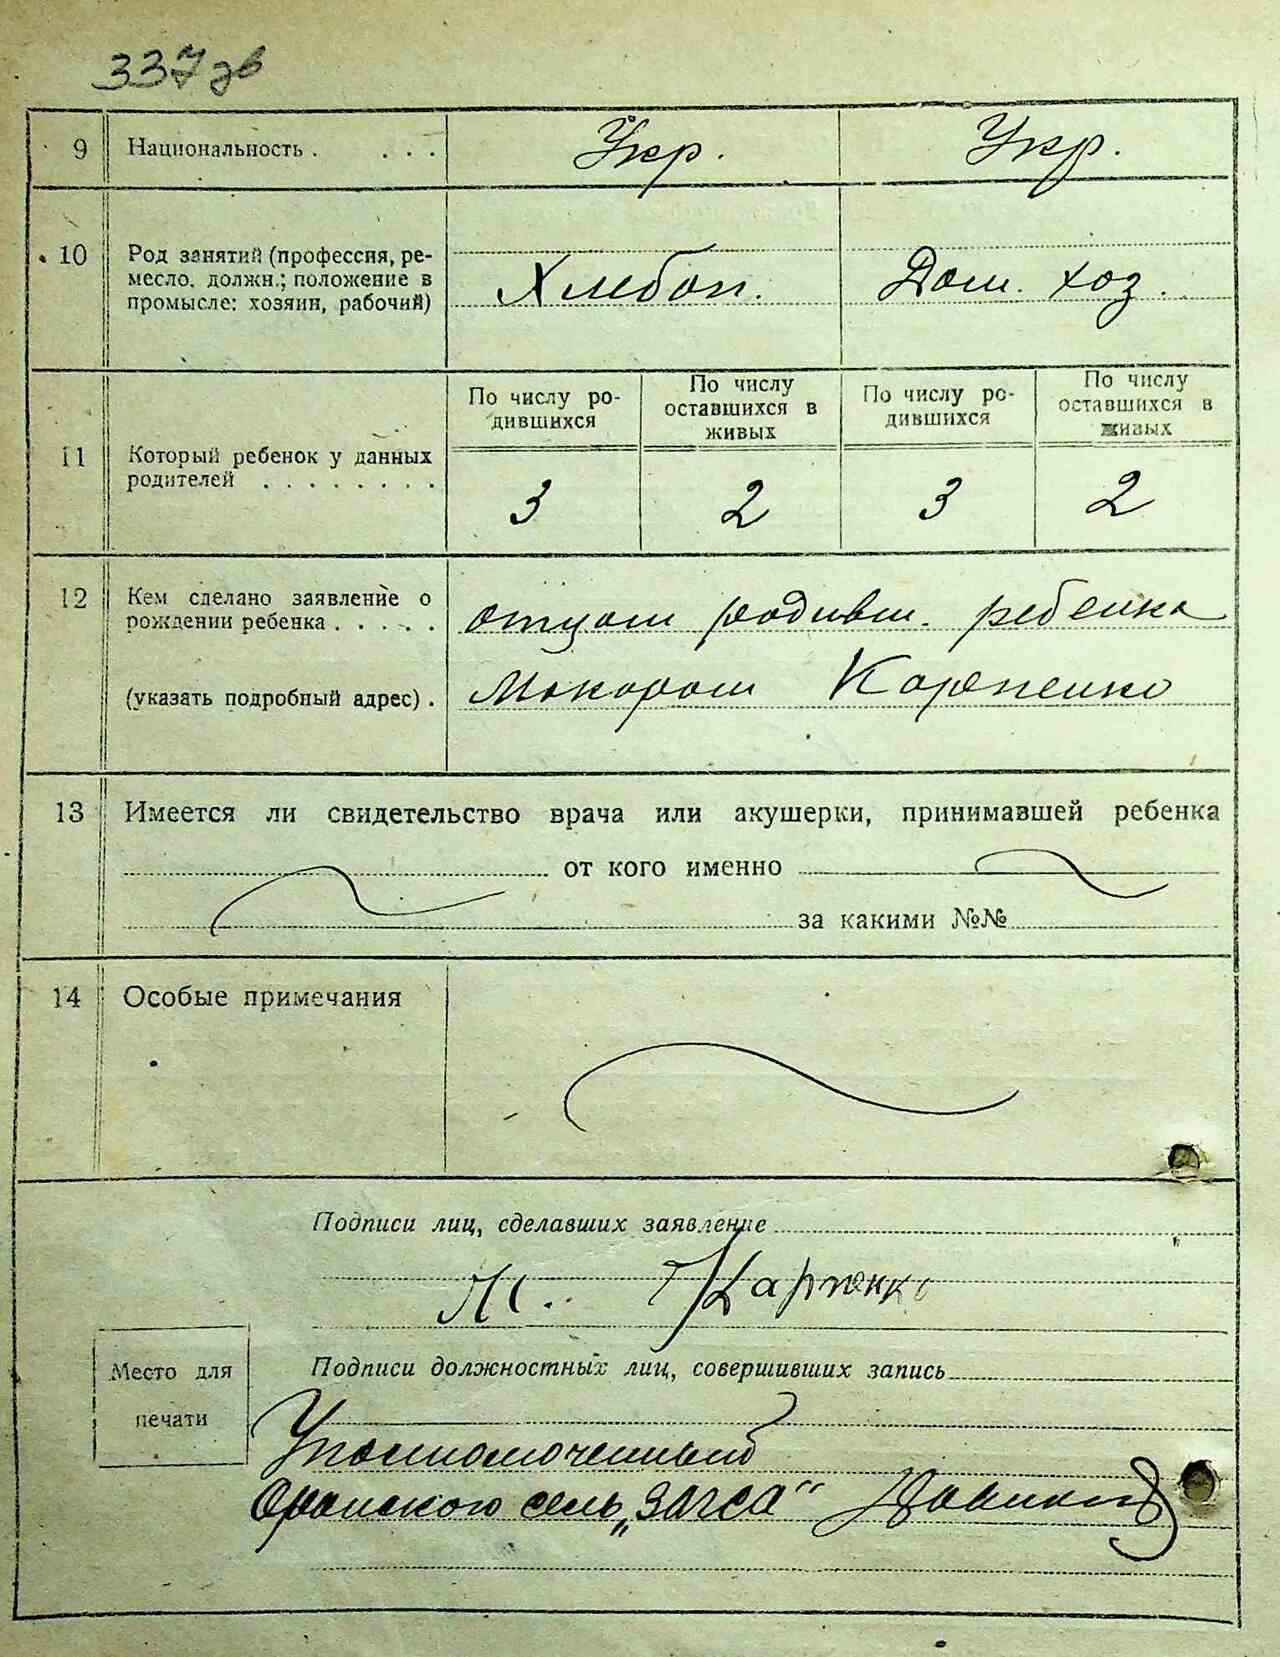 337 зв
9 Национальность . . . . Укр. Укр.
10 Род занятий (профессия, ре-
месло, должн.; положение в
промысле: хозяин, рабочий)
Хлебоп. Дом. хоз.
11 Который ребенок у данных
родителей . . . . . . . .
По числу ро-
дившихся
По числу
оставшихся в
живых
По числу ро-
дившихся
По числу
оставшихся в
живых
3 2 3 2
12 Кем сделано заявление о
рождении ребенка . . . . .
(указать подробный адрес) .
отцом родивш. ребенка
Макаром Карпенко
13 Имеется ли свидетельство врача или акушерки, принимавшей ребенка
от кого именно
за какими №№
14 Особые примечания
Подписи лиц, сделавших заявление
М. Карпенко
Место для
печати
Подписи должностных лиц, совершивших запись
Уполномоченный
сель „ЗАГСА“